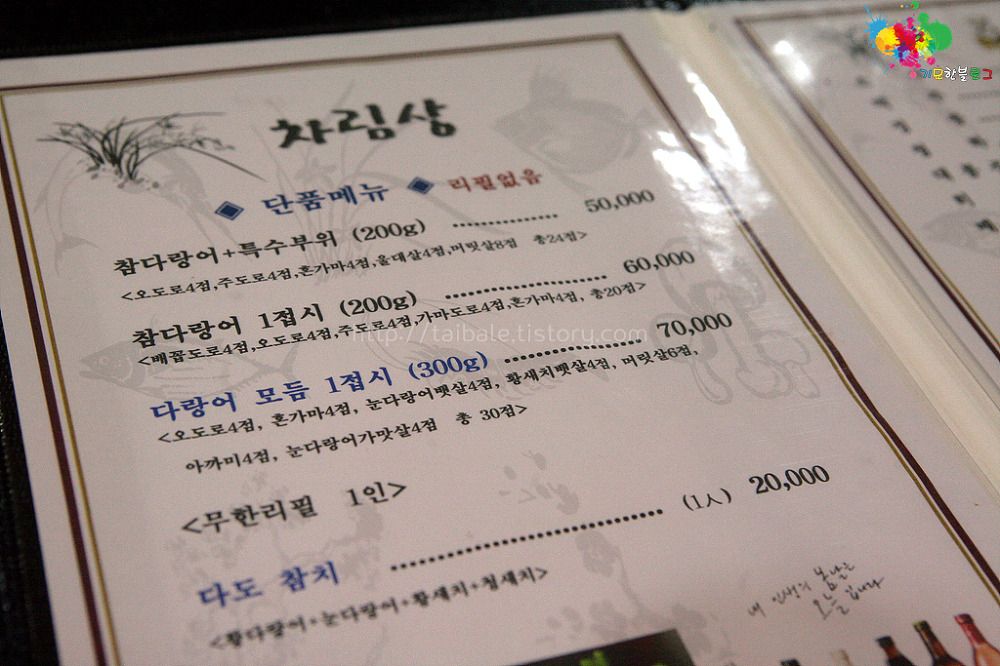 기묘한블로그
차림상
◈ 단품메뉴 ◈ 리필없음
참다랑어+특수부위 (200g) ............... 50,000
<오도로4점,주도로4점,혼가마4점,울대살4점,머릿살8점 총24점>
참다랑어 1접시 (200g) ............... 60,000
<배꼽도로4점,오도로4점,주도로4점,가마도로4점,혼가마4점, 총20점>
http://taibale.tistory.com
다랑어 모듬 1접시 (300g) ............... 70,000
<오도로4점, 혼가마4점, 눈다랑어뱃살4점, 황새치뱃살4점, 머릿살6점,
아까미4점, 눈다랑어가맛살4점 총 30점>
<무한리필 1인>
다도 참치 ............... (1人) 20,000
<황다랑어+눈다랑어+황새치+청새치>
내 인생의 봄날은
오늘 입니다